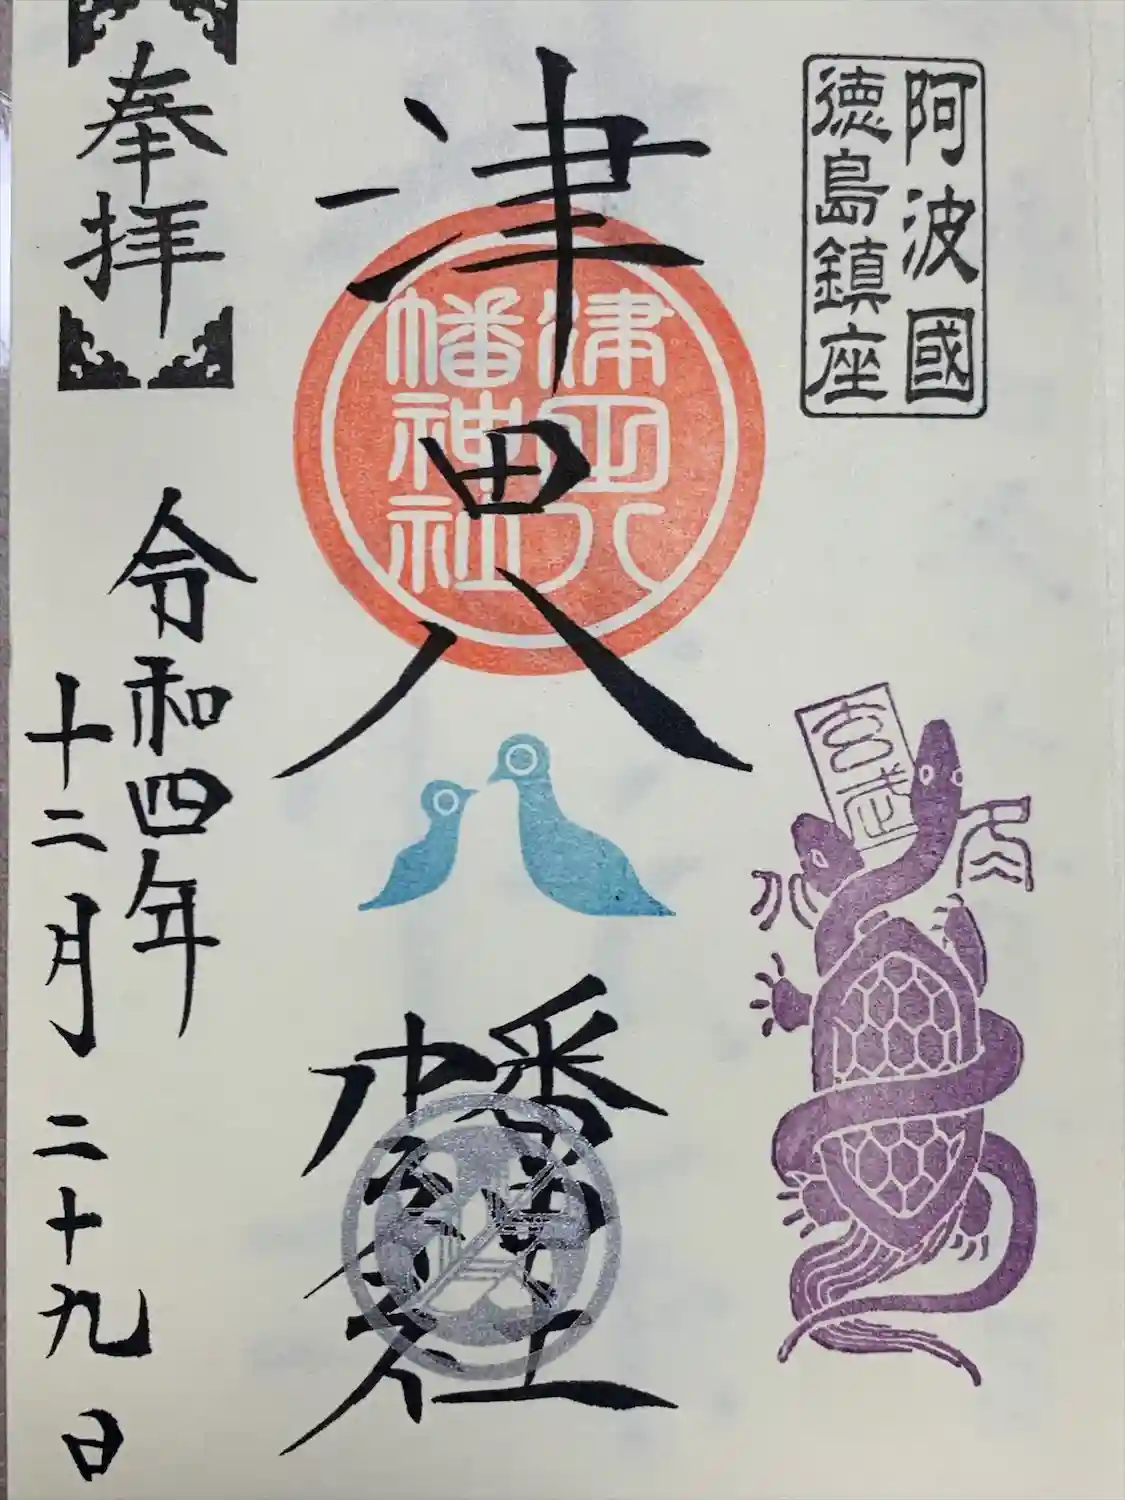 阿波國
徳島鎮座
玄武
水
津田八幡神社
津田八
幡神社
奉拝
令和四年
十二月二十九日